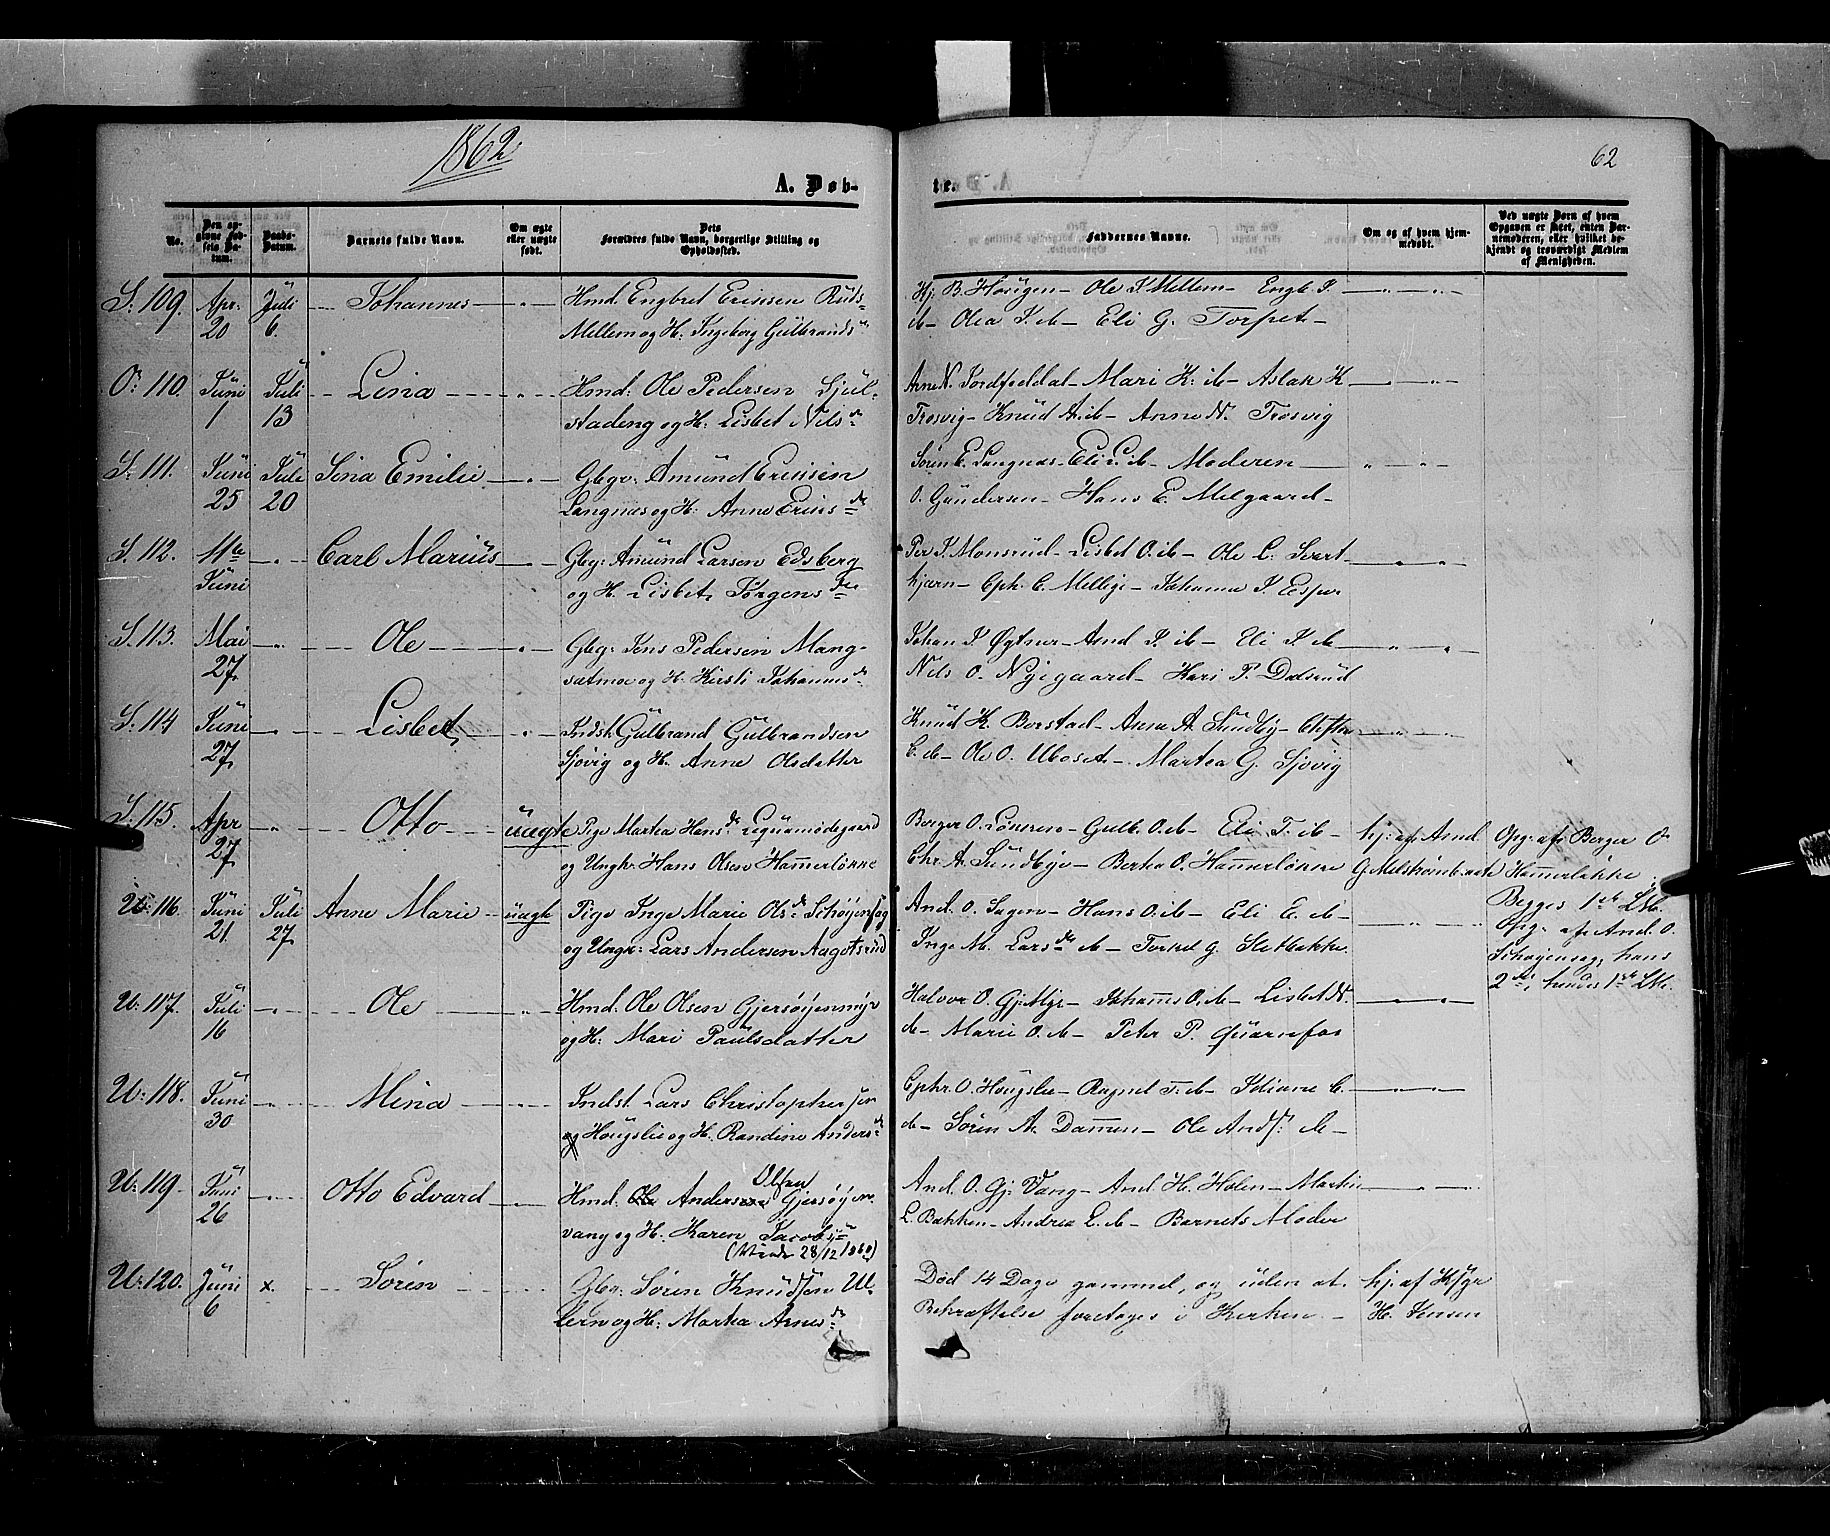 1862
62
A. Døb-
te.
No.
Den opgivne Fødsels Datum.
Daabs-Datum.
Barnets fulde Navn.
Om ægte eller uægte født.
Dets Forældres fulde Navn, borgerlige Stilling og Opholdssted.
Faddernes Navne.
Om og af hvem hjemmedøbt.
Ved uægte Børn af hvem Opgaven er sket, enten Barnemoderen, eller hvilket bekjendt og troværdigt Medlem af Menigheden.
S. 109. Apr. 20 Juli 6. Johannes
Hmd. Engbret Erissen Ruds-
Millem og H. Ingeborg Gulbrandsdr
Ole I. Millem Engb. I.
ib Olea I. ib Eli G. Torpet
O: 110. Juni 1 Juli 13 Lina
Hmd: Ole Pedersen Sjul-
stadeng og H: Lisbet Nilsdr
Mari K: ib Aslak K
Trosvig Knud A. ib Anne N. Trosvig
S. 111. Juni 25 Juli 20 Sina Emilie
Gbgr: Amund Erissen
Langnæs og H: Anne Erisdr
Søren E. Langnæs Eli L. ib Moderen
O. Gundersen Hans E. Melgaard
S. 112. 11te Juni Carl Marius
Gbg: Amund Larsen Edsberg
og H. Lisbet Jørgensdr
Per I. Monsrud Lisbet O. ib Ole L. Svert-
kjærn Cph. C. Johanna I.
S. 113. Mai 27 Ole
Gbg: Jens Pedersen Mang-
satmoe og H. Kirsti Johannisdr
Johan I. Øgtner Amd I. ib Eli I. ib
Nils O. Nygaard Kari P. Dalsrud
S. 114 Juni 27 Lisbet
Indst. Gulbrand Gulbrandsen
Sjøvig og H. Anne Olsdatter
Knud K. Borstad Anna A. Sundby
C. ib Ole O. Martea G. Sjøvig
S. 115. Apr 27 Otto uægte
Pige Martea Hansdr
og Ungk: Hans Olsen Hammerløkke
Berger O. Gulb. O. ib Eli T. ib
Chr. A. Sundbye Berthe O. Hammerløkke
hj: af Amd
Opg: af Berger O
Hammerløkke
U: 116. Juni 21. Juli 27 Anne Marie uægte
Pige Inge Marie Olsdr Schøyensag
og Ungk: Lars Andersen Aagotsrud
And. O. Sagen Hans O. ib Eli E. ib
Inge M. Larsdr ib Torkel G. Sletbakke
Begges 1ste Lm.
Opg. af And. O.
Schøyensag, hans
2det, hendes 1ste Lm.
U: 117. Juli 16 Ole
Hmd. Ole Olsen Gjersøyenmyr
og H. Mari Paulsdatter
Halvor O. Gj.Myr Johanns O. ib Lisbet N.
ib Marie O. ib Peter P. Quærnfos
U: 118. Juni 30 Mina
Indst. Lars Christophersen
og Hougslie og H. Randine Andersdr
Cphr. O. Hougslie Ragnil T. ib C.
ib Søren A. Dammen Ole Ands: ib
U: 119. Juni 26 Otto Edvard
Olsen
Hmd. Ole Andersen Gjersøyen-
vang og H. Karen Jacobs
28/12
And. O. Gj. Vang And. H. Holen Martin
L. Bakken Andrea L. ib Barnets Moder
U: 120. Juni 6 x. Søren
Gbr: Søren Knudsen Ul-
lern og H: Martea Arnesdr
Død 14 Dage gammel, og uden at
Bekræftelse foretoges i Kirken
hj. af
H. Jensen